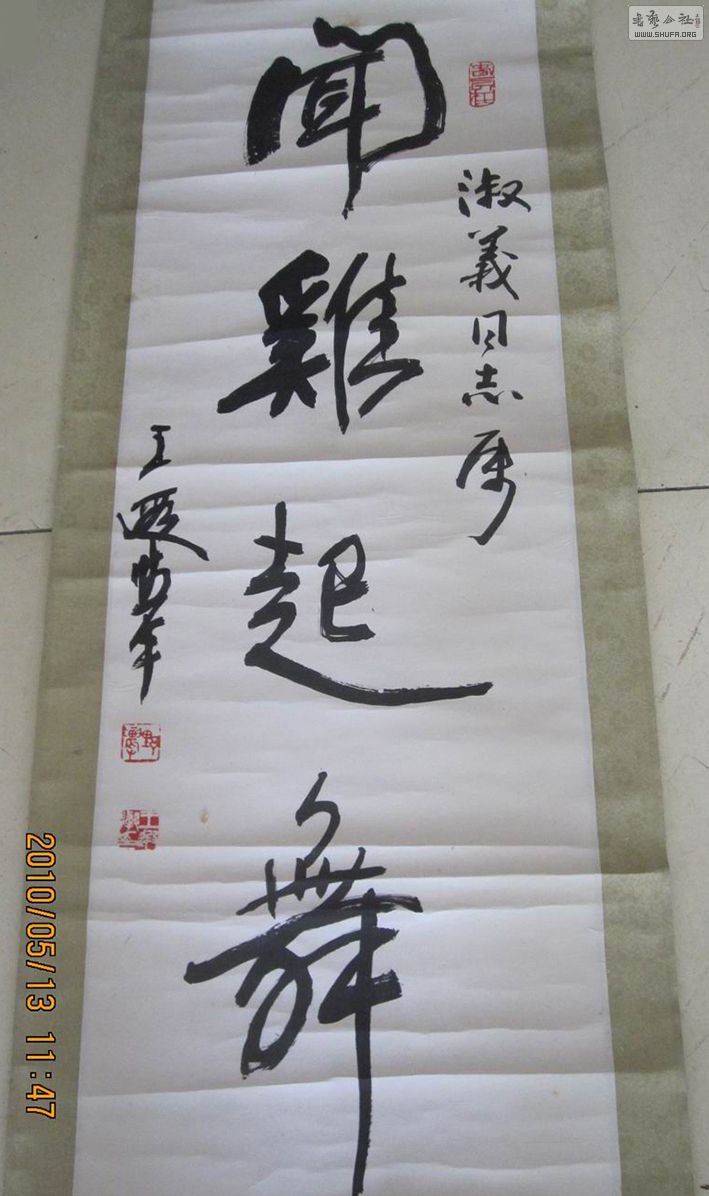 聞雞起舞
淑義同志屬
王遐舉
書法公社
WWW.SHUFA.ORG
2010/05/13 11:47